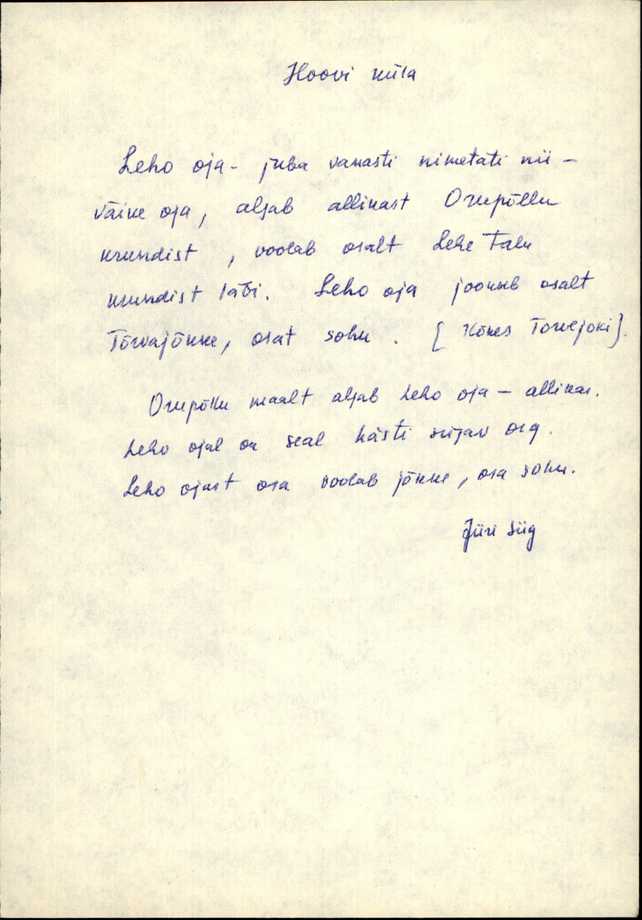 Hoovi küla
Leho oja - juba vanasti nimetati nii -
väike oja, algab allikast Orupõllu
krundist, voolab osalt Lehe talu
krundist läbi. Leho oja jookseb osalt
Tõrvajõkke, osat sohu. [Kõnes Torvejoki].
Orupõllu maalt algab Leho oja - allikas.
Leho ojal on seal hästi sügav org.
Leho ojast osa voolab jõkke, osa sohu.
Jüri Siig